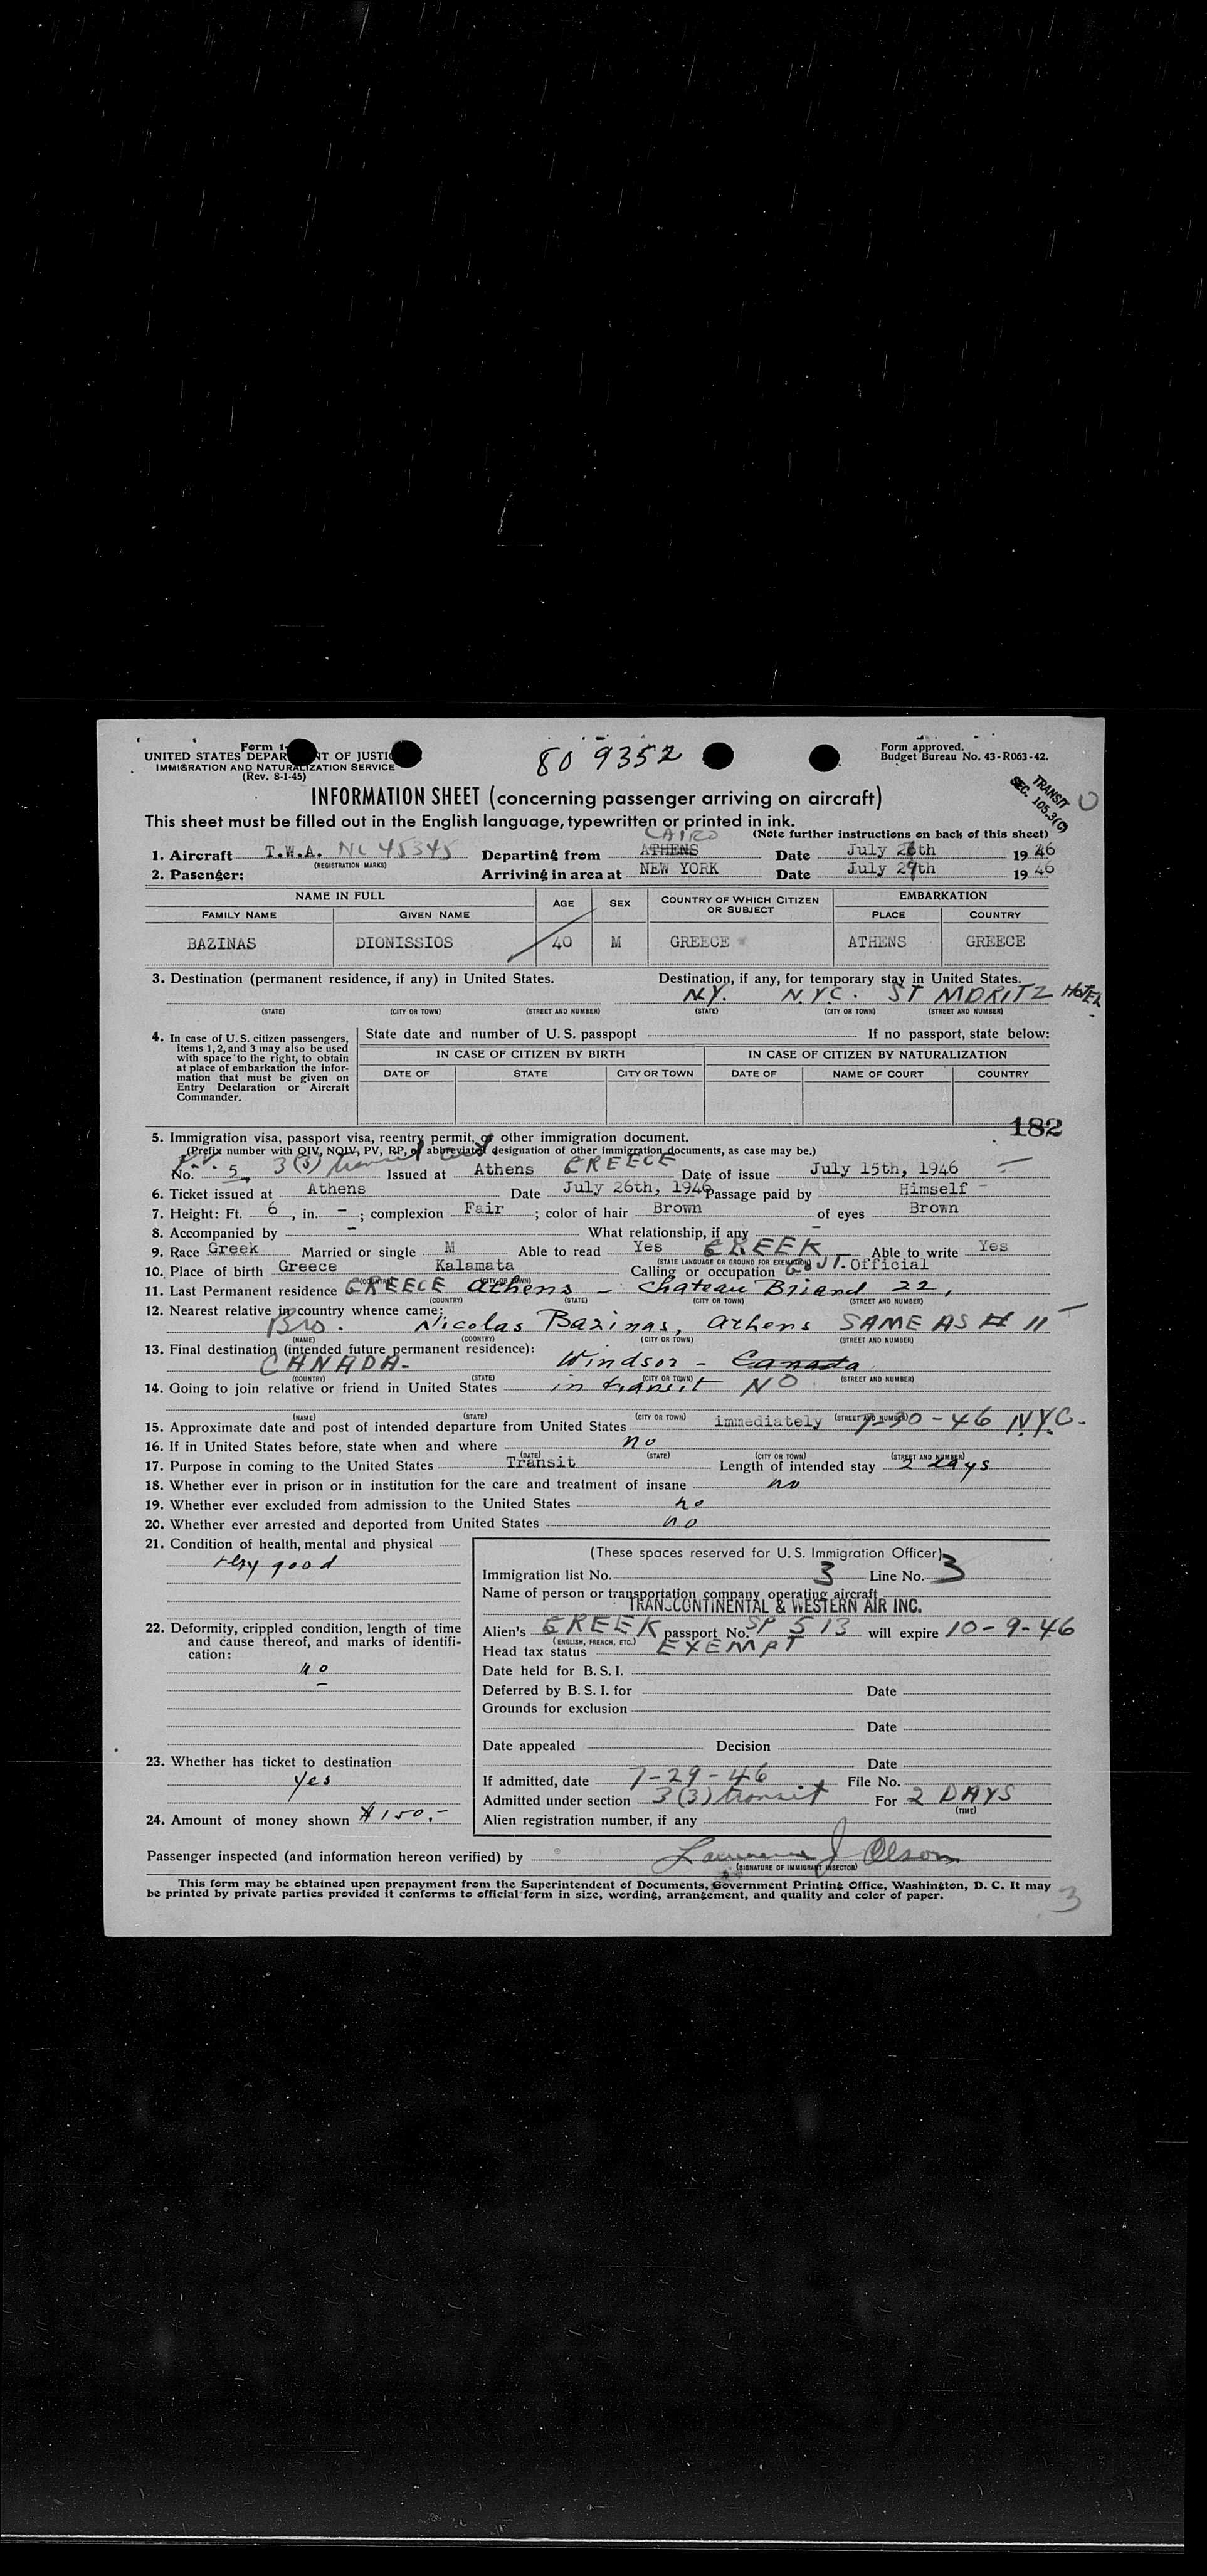 Form 1-
UNITED STATES DEPAR T OF JUSTIC
IMMIGRATION AND NATURALIZATION SERVICE
(Rev. 8-1-45)
80 9352
Form approved.
Budget Bureau No. 43-R063-42.
TRANSIT
SEC. 105.3(C)
INFORMATION SHEET (concerning passenger arriving on aircraft)
This sheet must be filled out in the English language, typewritten or printed in ink.
(Note further instructions on back of this sheet)
CAIRO
1. Aircraft T.W.A. NC 45345 Departing from ATHENS Date July 2 th 1946
(REGISTRATION MARKS)
2. Pasenger: Arriving in area at NEW YORK Date July 29th 1946
NAME IN FULL AGE SEX COUNTRY OF WHICH CITIZEN OR SUBJECT EMBARKATION
FAMILY NAME GIVEN NAME PLACE COUNTRY
BAZINAS DIONISSIOS 40 M GREECE ATHENS GREECE
3. Destination (permanent residence, if any) in United States. Destination, if any, for temporary stay in United States.
N.Y. N.Y.C. ST MORITZ HOTEL
(STATE) (CITY OR TOWN) (STREET AND NUMBER) (STATE) (CITY OR TOWN) (STREET AND NUMBER)
4. In case of U.S. citizen passengers, items 1, 2, and 3 may also be used with space to the right, to obtain at place of embarkation the information that must be given on Entry Declaration or Aircraft Commander.
State date and number of U.S. passpopt If no passport, state below:
IN CASE OF CITIZEN BY BIRTH IN CASE OF CITIZEN BY NATURALIZATION
DATE OF STATE CITY OR TOWN DATE OF NAME OF COURT COUNTRY
182
5. Immigration visa, passport visa, reentry permit, or other immigration document.
(Prefix number with QIV, NQIV, PV, RP, or abbreviated designation of other immigration documents, as case may be.)
P.V. No. 5 3(3) transit Issued at Athens GREECE Date of issue July 15th, 1946
6. Ticket issued at Athens Date July 26th, 1946 Passage paid by Himself -
7. Height: Ft. 6, in. - ; complexion Fair ; color of hair Brown of eyes Brown
8. Accompanied by - What relationship, if any -
9. Race Greek Married or single M Able to read Yes GREEK Able to write Yes
(STATE LANGUAGE OR GROUND FOR EXEMPTION)
10. Place of birth Greece Kalamata Calling or occupation GOVT. Official
(COUNTRY) (CITY OR TOWN)
11. Last Permanent residence GREECE Athens - Chateau Briand 22,
(COUNTRY) (STATE) (CITY OR TOWN) (STREET AND NUMBER)
12. Nearest relative in country whence came:
Bro. Nicolas Bazinas, Athens SAME AS # 11
(NAME) (COUNTRY) (CITY OR TOWN) (STREET AND NUMBER)
13. Final destination (intended future permanent residence):
CANADA - Windsor - Canada
(COUNTRY) (STATE) (CITY OR TOWN) (STREET AND NUMBER)
14. Going to join relative or friend in United States in transit NO
(NAME) (STATE) (CITY OR TOWN) (STREET AND NUMBER)
15. Approximate date and post of intended departure from United States immediately 7-30-46 N.Y.C.
16. If in United States before, state when and where no
(DATE) (STATE) (CITY OR TOWN) (STREET AND NUMBER)
17. Purpose in coming to the United States Transit Length of intended stay 2 days
18. Whether ever in prison or in institution for the care and treatment of insane no
19. Whether ever excluded from admission to the United States no
20. Whether ever arrested and deported from United States no
21. Condition of health, mental and physical
very good
22. Deformity, crippled condition, length of time and cause thereof, and marks of identification:
no
-
23. Whether has ticket to destination
Yes
24. Amount of money shown $150.-
(These spaces reserved for U.S. Immigration Officer)
Immigration list No. 3 Line No. 3
Name of person or transportation company operating aircraft
TRANSCONTINENTAL & WESTERN AIR INC.
Alien's GREEK passport No. SP 513 will expire 10-9-46
(ENGLISH, FRENCH, ETC.)
Head tax status EXEMPT
Date held for B.S.I.
Deferred by B.S.I. for Date
Grounds for exclusion
Date
Date appealed Decision
Date
If admitted, date 7-29-46 File No.
Admitted under section 3(3) transit For 2 DAYS
(TIME)
Alien registration number, if any
Passenger inspected (and information hereon verified) by Lawrence J Olson
(SIGNATURE OF IMMIGRANT INSECTOR)
This form may be obtained upon prepayment from the Superintendent of Documents, Government Printing Office, Washington, D. C. It may
be printed by private parties provided it conforms to official form in size, wording, arrangement, and quality and color of paper.
3